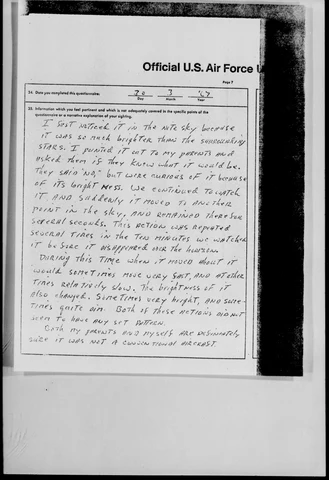 Official U.S. Air Force U
Page 7
34. Date you completed this questionnaire:
20 3 '67
Day Month Year
35. Information which you feel pertinent and which is not adequately covered in the specific points of the
questionnaire or a narrative explanation of your sighting.
I first noticed it in the nite sky because
it was so much brighter than the surrounding
stars. I pointed it out to my parents and
asked them if they knew what it would be.
They said "NO," but were curious of it because
of its bright ness. We continued to watch
it and suddenly it moved to another
point in the sky, and remained there for
several seconds. This action was repeated
several times in the ten minutes we watched
it before it disappeared over the horizon.
During this time when it moved about it
would sometimes move very fast, and at other
times relatively slow. The brightness of it
also changed. Sometimes very bright, and some-
times quite dim. Both of these actions did not
seem to have any set pattern.
Both my parents and myself are definately
sure it was not a conventional aircraft.